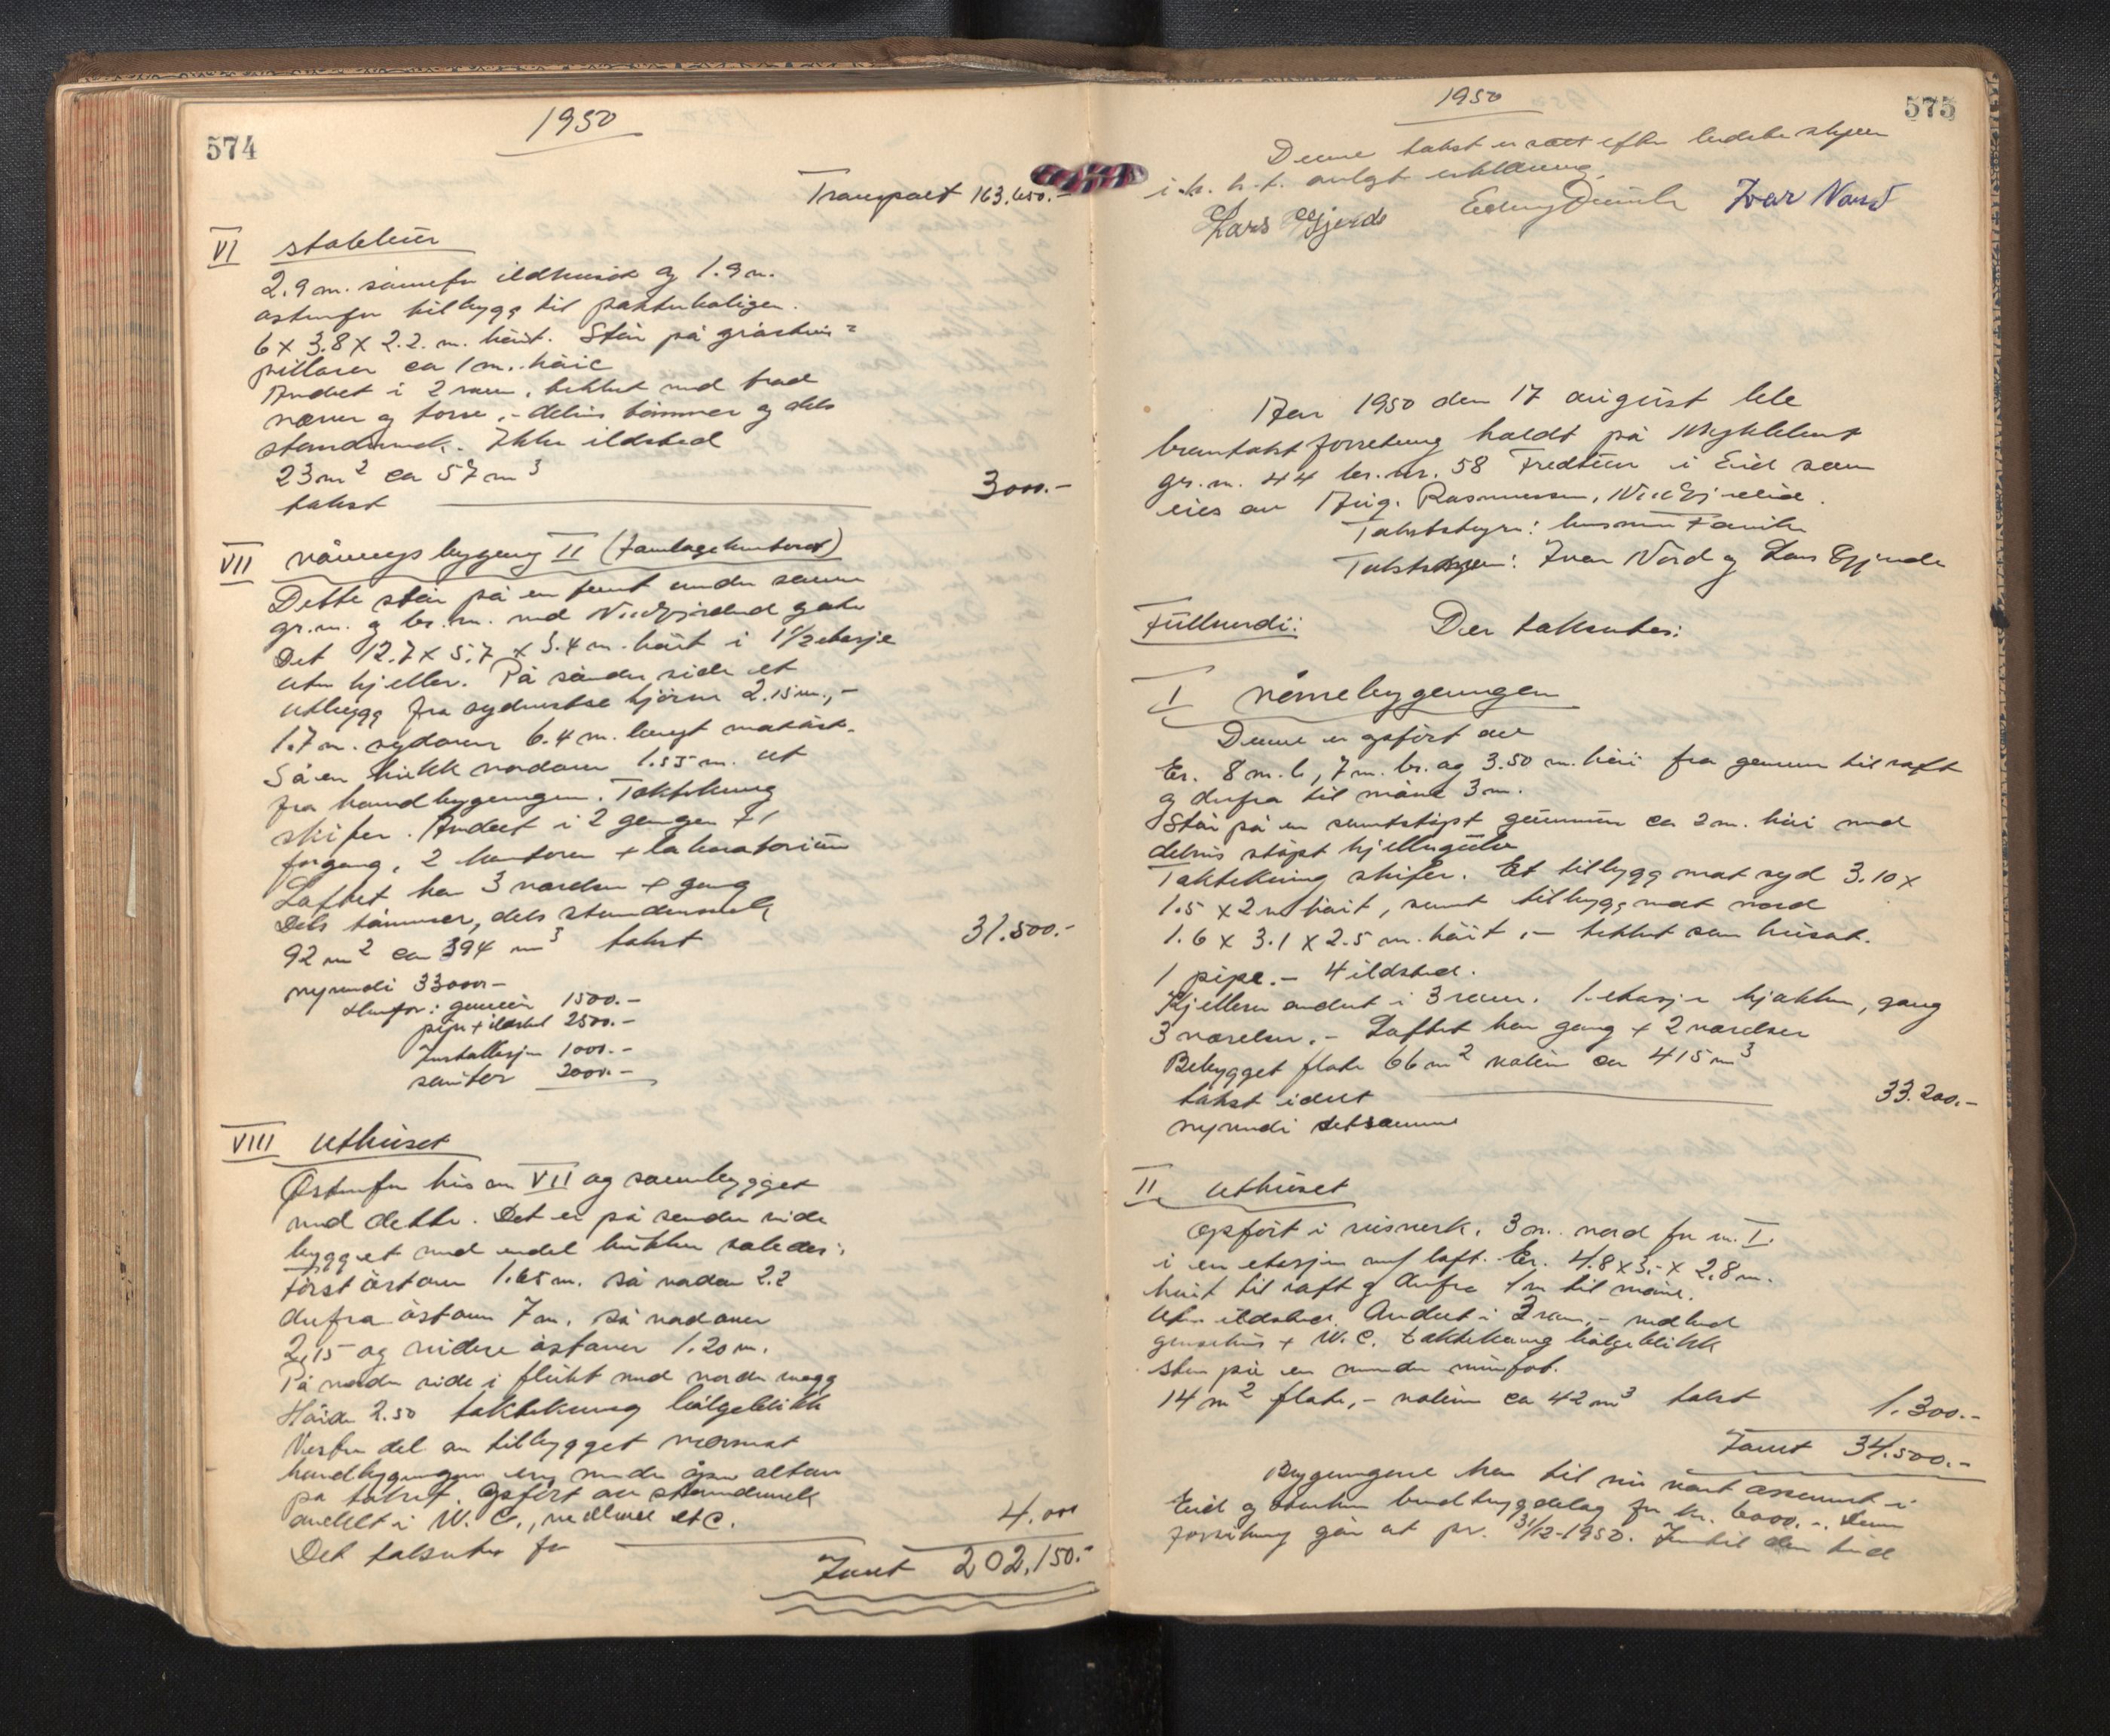 574
1950
Transport 163.650.-
VI stabbur
2.9 m. sønnefor ildhuset og 1.9 m.
østenfor tilbygg til pakterboligen.
6 x 3.8 x 2.2. m. høit. Står på gråstein=
pillarer ca 1 m. høie
Indret i 2 rum, tekket med
never og torv, - delvis tømmer og dels
standerverk. Ikke ildsted
23 m² ca 57 m³
takst 3000.-
VII våningsbygning II
Dette står på en tomt under samme
gr.nr. og br.nr. med
Det 12.7 x 5.7 x 5.4 m. høit i 1 1/2 etasje
uten kjeller. På søndre side et
utbygg fra sydvestre hjørne 2.15 m., -
1.7 m. sydover 6.4 m. langt mot øst.
Så en knekk nordover 1.55 m. ut
fra hovedbygningen. Taktekning
skifer. Indret i 2 ganger + 1
forgang, 2 kontorer + laboratorium
Loftet har 3 værelser + gang
Dels tømmer, dels standerverk
92 m² ca 394 m³ takst 31.500.-
nyverdi 33000-
Herfor: grunnmur 1500.-
pipe + ildsted 2500.-
Installasjon 1000.-
sanitær 2000.-
VIII Uthuset
Østenfor hus nr VII og sammenbygget
med dette. Det er på søndre side
bygget med endel knekker således:
først østover 1.65 m. så nordover 2.2
derfra østover 7 m. så nordover
2.15 og videre østover 1.20 m.
På nordre side i flukt med nordre vegg
Høide 2.50 taktekning bølgeblikk
Vestre del av tilbygget nærmest
hovedbygningen er åpen altan
på taket. Opført av standerverk
avdelt i W.C., vedbuer etc.
Det takseres for 4.000
Sumt 202.150.-
1950
575
Denne takst er satt efter
i h. h. t. avlagt erklæring.
Lars Gjerde Ivar Nord
År 1950 den 17 august ble
branntakstforretning holdt på Myklebust
gr. nr. 44 br. nr. 58 Fredtun i Eid som
eies av Aug. Rasmussen, Nordfjordeid.
Takstbestyrer:
Takstmenn: Ivar Nord og Lars Gjerde
Fullverdi: Der takseres:
I våningsbygningen
Denne er opført av
Er. 8 m. l, 7 m. br. og 3.50 m. høi fra grunnmur til raft
og derfra til møne 3 m.
Står på en sementstøpt grunnmur ca 2 m. høi med
delvis støpt kjellergulv
Taktekning skifer. Et tilbygg mot syd 3.10 x
1.5 x 2 m høit, samt tilbygg mot nord
1.6 x 3.1 x 2.5 m. høit, - tekket som huset.
1 pipe. - 4 ildsted.
Kjelleren avdelt i 3 rum. 1. etasje kjøkken, gang
3 værelser. - Loftet har gang + 2 værelser
Bebygget flate 66 m² volum ca 415 m³
takst idet 33.200.-
nyverdi detsamme
II Uthuset
opført i reisverk. 3 m. nord for nr. I.
i en etasje med loft. Er. 4.8 x 3.- x 2.8 m.
høit til raft og derfra 1 m til møne.
Uten ildsted. Avdelt i 3 rum, - vedbod
+ W.C. taktekning bølgeblikk
Står på en mindre murfot.
14 m² flate, - volum ca 42 m³ takst 1.300.-
Sumt 34.500.-
Bygningene har til nu vært assurert i
Eid og brandtrygdelag for kr. 6000.-. Denne
forsikring går ut pr. 31/12-1950. Inntil den tid